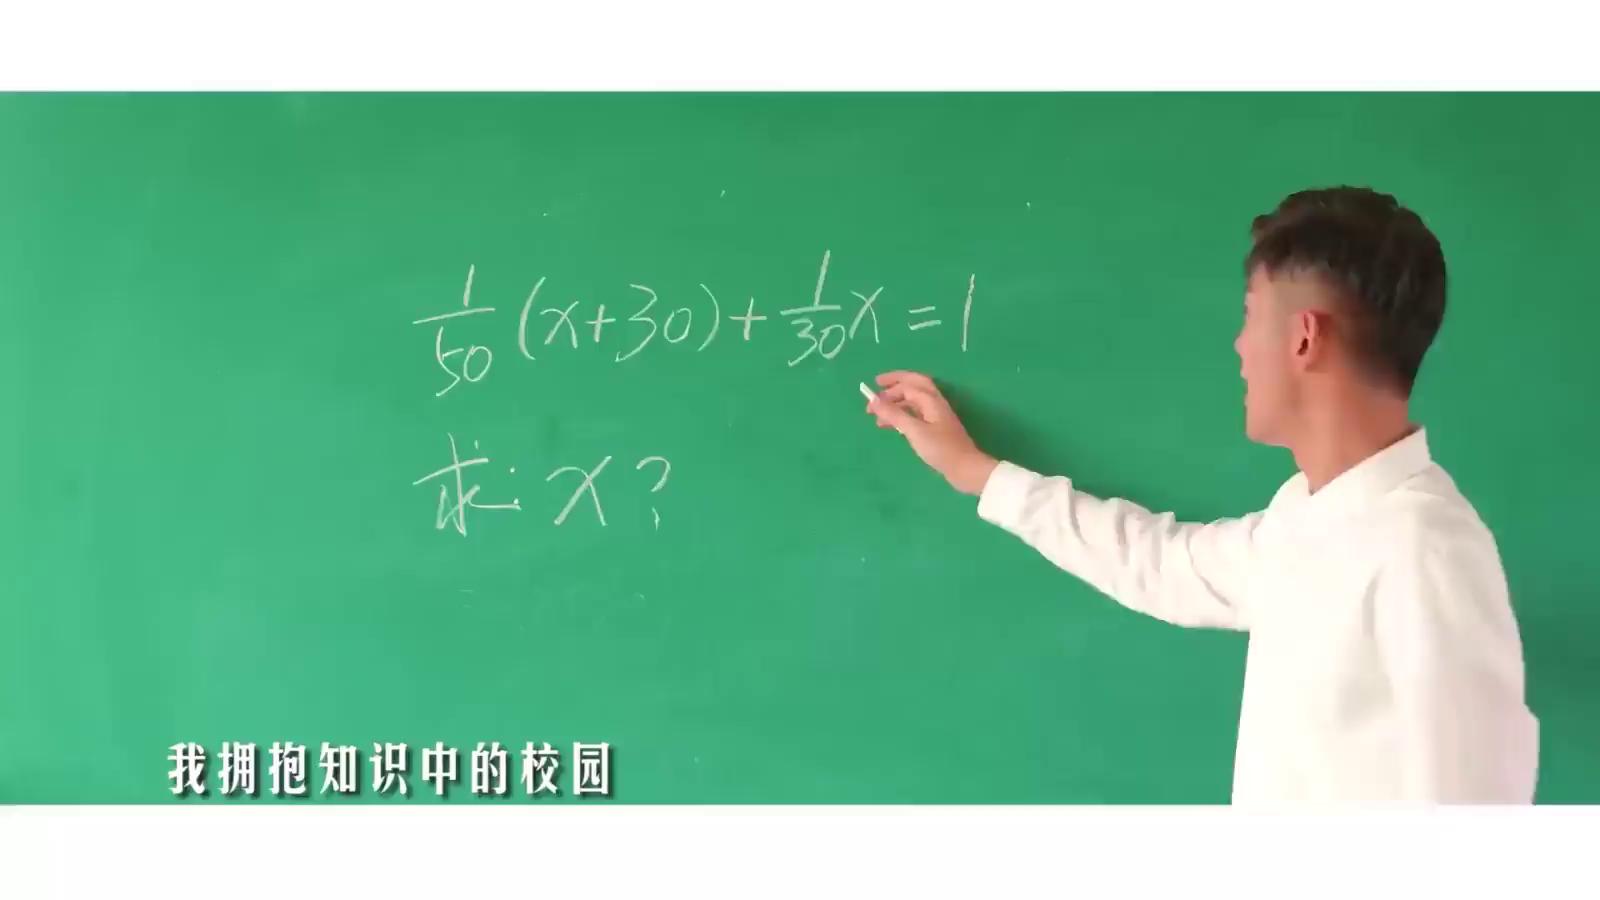 1/50 (x+30) + 1/30 x = 1
求: x?
我拥抱知识中的校园